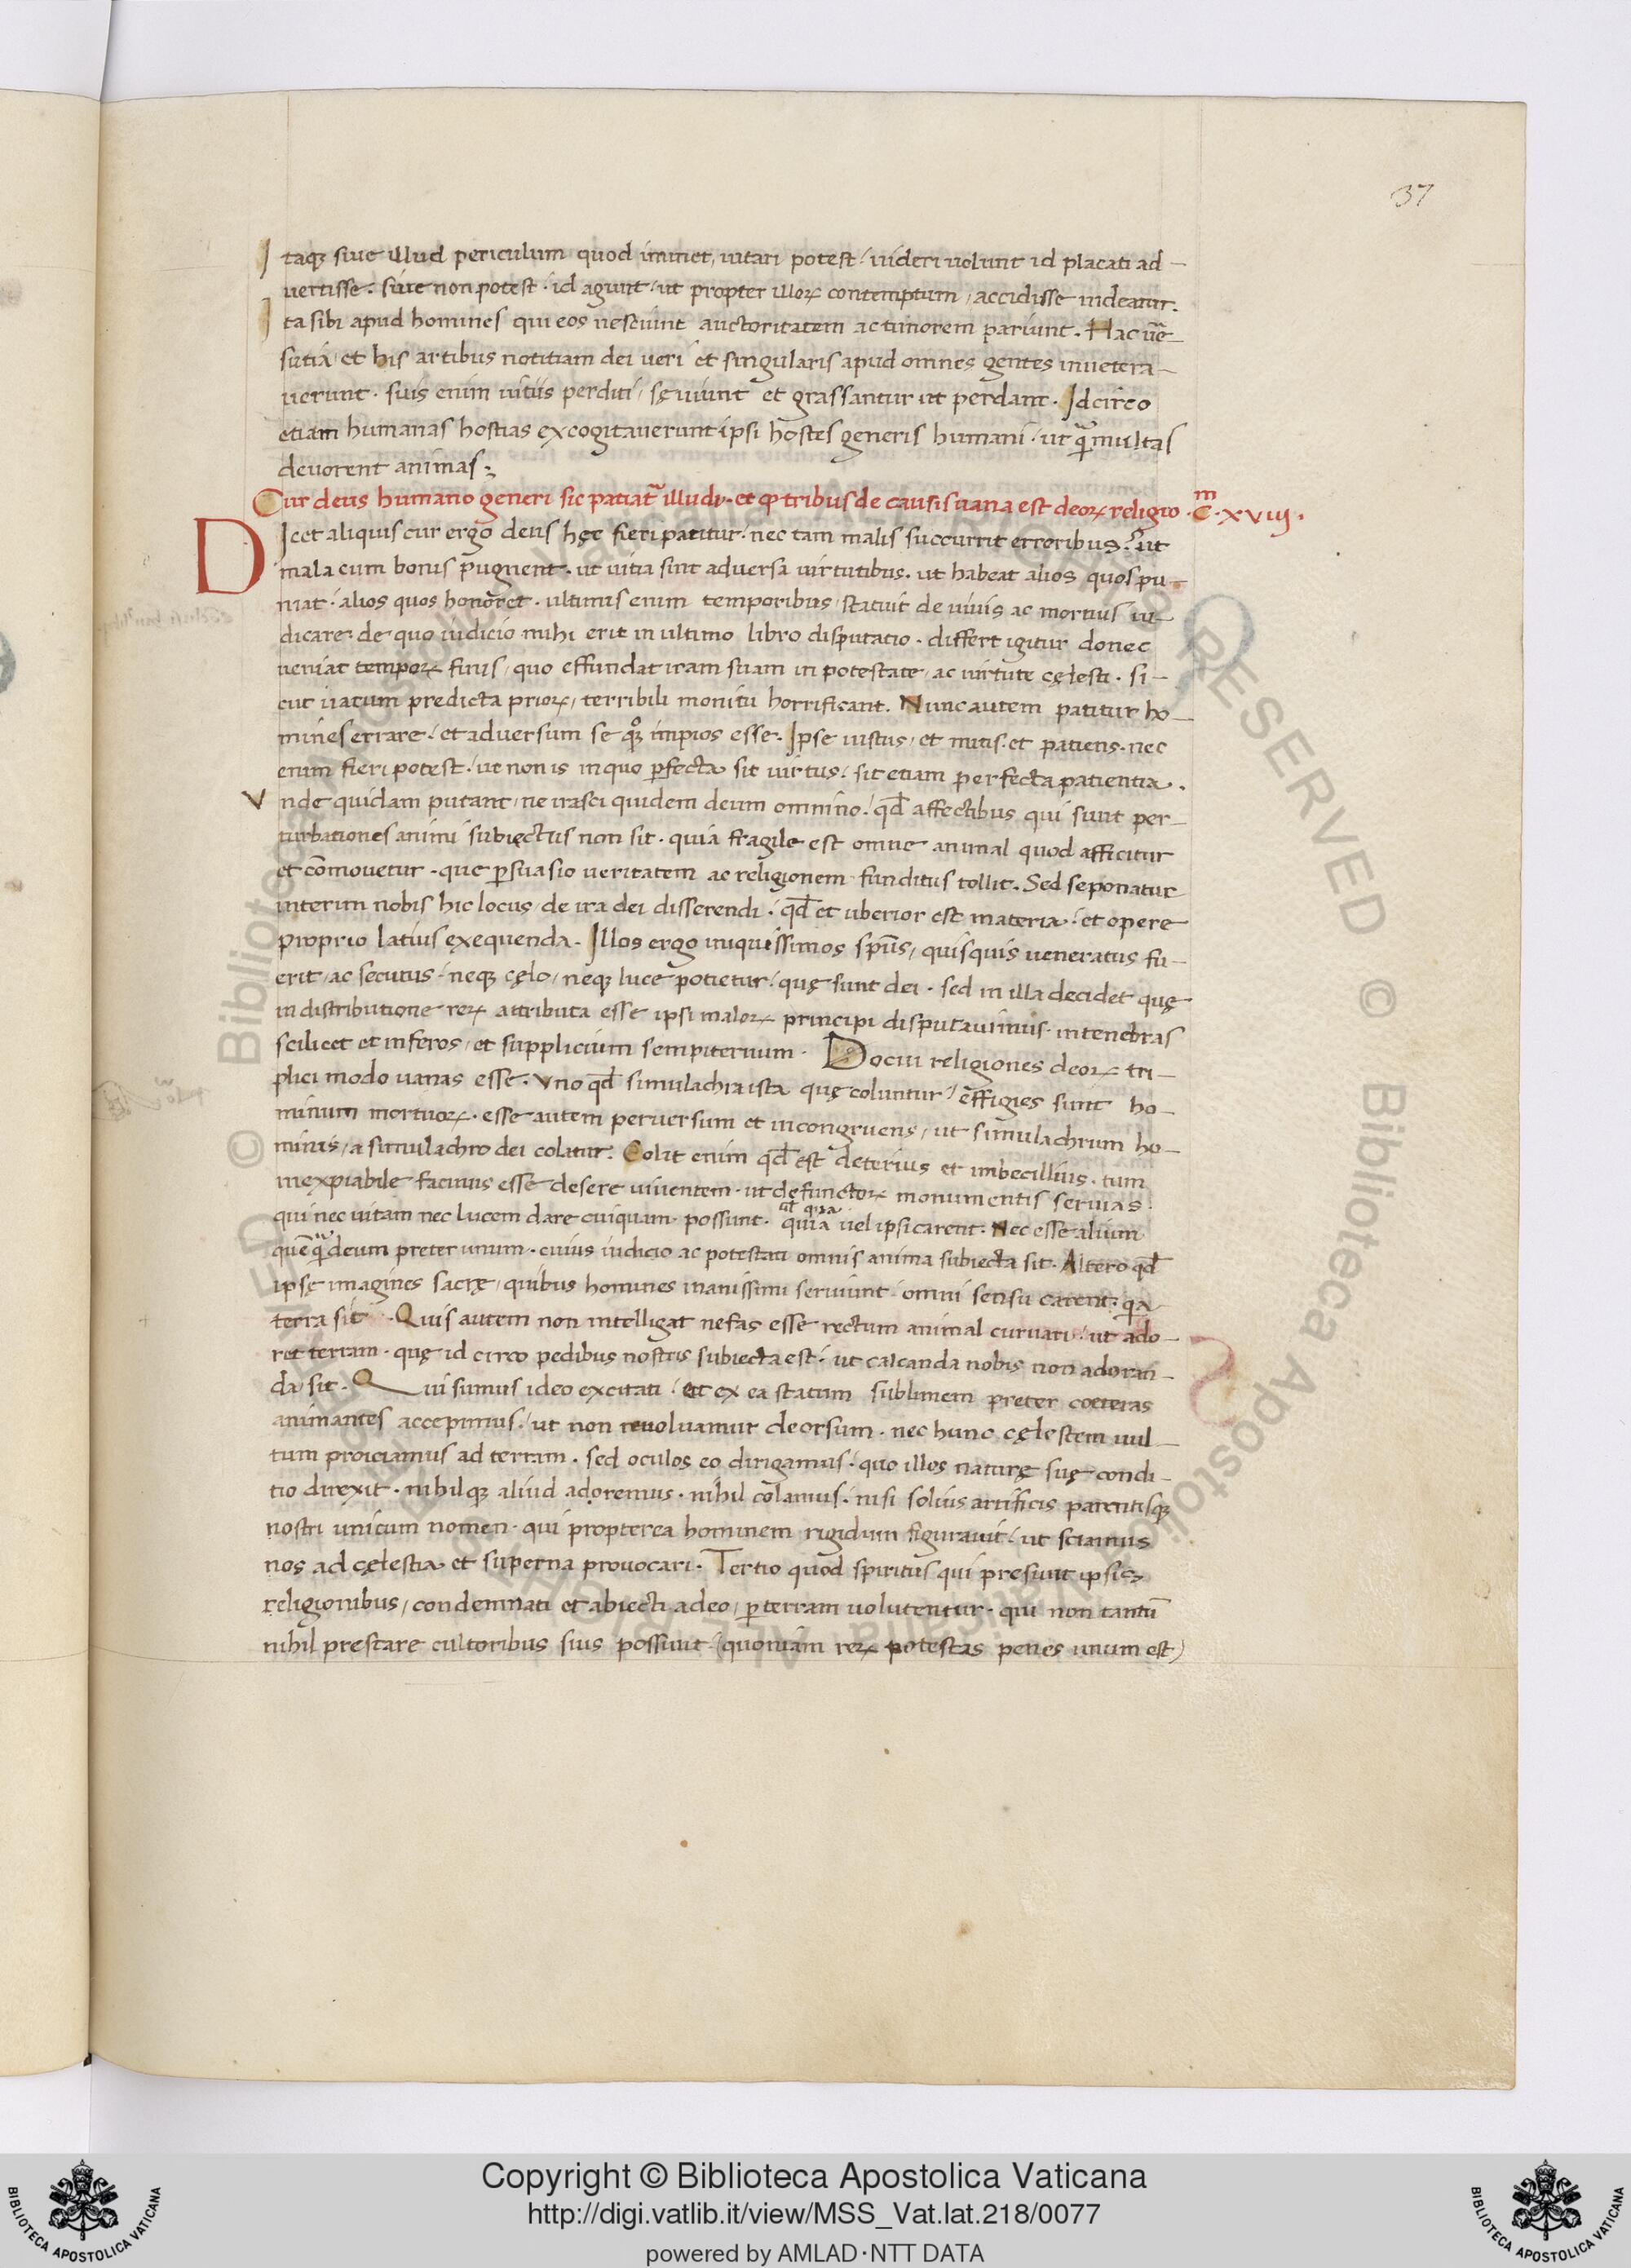 37
Itaqꝫ siue illud periculum quod iminet, uitari potest, uideri uolunt id placati ad-
uertisse. siue non potest. id agunt, ut propter illoꝝ contemptum, accidisse uideatur.
Ita sibi apud homines qui eos nesciunt auctoritatem ac timorem pariunt. Hac uẽ-
sutia, et his artibus notitiam dei ueri et singularis apud omnes gentes inuetera-
uerunt. suis enim uitiis perditi, sęuiunt et grassantur ut perdant. Idcirco
etiam humanas hostias excogitauerunt ipsi hostes generis humani, ut q̃multas
deuorent animas.
Cur deus humano generi sic patiat᷑ illudi. et ꝙ tribus de causis uana est deoꝝ religio. Cm. xviij.
DIcet aliquis cur ergo deus hęc fieri patitur, nec tam malis succurrit erroribus? ut
mala cum bonis pugnent. ut uitia sint aduersa uirtutibus. ut habeat alios quos pu-
niat. alios quos honoret. ultimis enim temporibus, statuit de uiuis ac mortuis iu-
dicare. de quo iudicio mihi erit in ultimo libro disputatio. differt igitur donec
ueniat tempoꝝ finis, quo effundat iram suam in potestate, ac uirtute cęlesti. si-
cut uatum predicta prioꝝ, terribili monitu horrificant. Nunc autem patitur ho-
mines errare, et aduersum se qͦꝫ impios esse. Ipse iustus, et mitis. et patiens. nec
enim fieri potest, ut non is in quo ꝑfecta sit uirtus, sit etiam perfecta patientia.
Vnde quidam putant, ne irasci quidem deum omnino, qđ affectibus qui sunt per-
turbationes animi subiectus non sit. quia fragile est omne animal quod afficitur
et cõmouetur. que ꝑsuasio ueritatem ac religionem funditus tollit. Sed seponatur
interim nobis hic locus, de ira dei disserendi. qđ et uberior est materia, et opere
proprio latius exequenda. Illos ergo iniquissimos spũs, quisquis ueneratus fu-
erit, ac secutus, neqꝫ cęlo, neqꝫ luce potietur, quę sunt dei. sed in illa decidet quę
in distributione reꝝ attributa esse ipsi maloꝝ principi disputauimus. in tenebras
scilicet et inferos, et supplicium sempiternum. Docui religiones deoꝝ tri-
plici modo uanas esse. Vno qđ simulachra ista quę coluntur, effigies sunt ho-
minum mortuoꝝ. esse autem peruersum et incongruens, ut simulachrum ho-
minis, a simulachro dei colatur. Colit enim qđ est deterius et imbecillius. tum
inexpiabile facinus esse desere uiuentem. ut defunctoꝝ monumentis seruias.
al' quia
qui nec uitam nec lucem dare cuiquam possunt. quia uel ipsi carent. Nec esse alium
quẽq̃ deum preter unum. cuius iudicio ac potestati omnis anima subiecta sit. Altero qđ
ipsę imagines sacrę, quibus homines inanissimi seruiunt, omni sensu carent. qa
terra sit. Quis autem non intelligat nefas esse rectum animal curuari, ut ado-
ret terram. quę id circo pedibus nostris subiecta est, ut calcanda nobis non adoran-
da sit. Qui sumus ideo excitati, et ex ea statum sublimem preter coeteras
animantes accepimus, ut non reuoluamur deorsum. nec hunc cęlestem uul-
tum proiciamus ad terram. sed oculos eo dirigamus, quo illos naturę suę condi-
tio direxit. nihilqꝫ aliud adoremus. nihil colamus, nisi solius artificis parentisqꝫ
nostri unicum nomen. qui propterea hominem rigidum figurauit, ut sciamus
nos ad cęlestia et superna prouocari. Tertio quod spiritus qui presunt ipsis
religionibus, condemnati et abiecti adeo, ꝑ terram uolutentur. qui non tantũ
nihil prestare cultoribus suis possunt, (quoniam reꝝ potestas penes unum est)
© Biblioteca Apostolica Vaticana ALL RIGHTS RESERVED
Copyright © Biblioteca Apostolica Vaticana
http://digi.vatlib.it/view/MSS_Vat.lat.218/0077
powered by AMLAD·NTT DATA
BIBLIOTECA APOSTOLICA VATICANA
BIBLIOTECA APOSTOLICA VATICANA